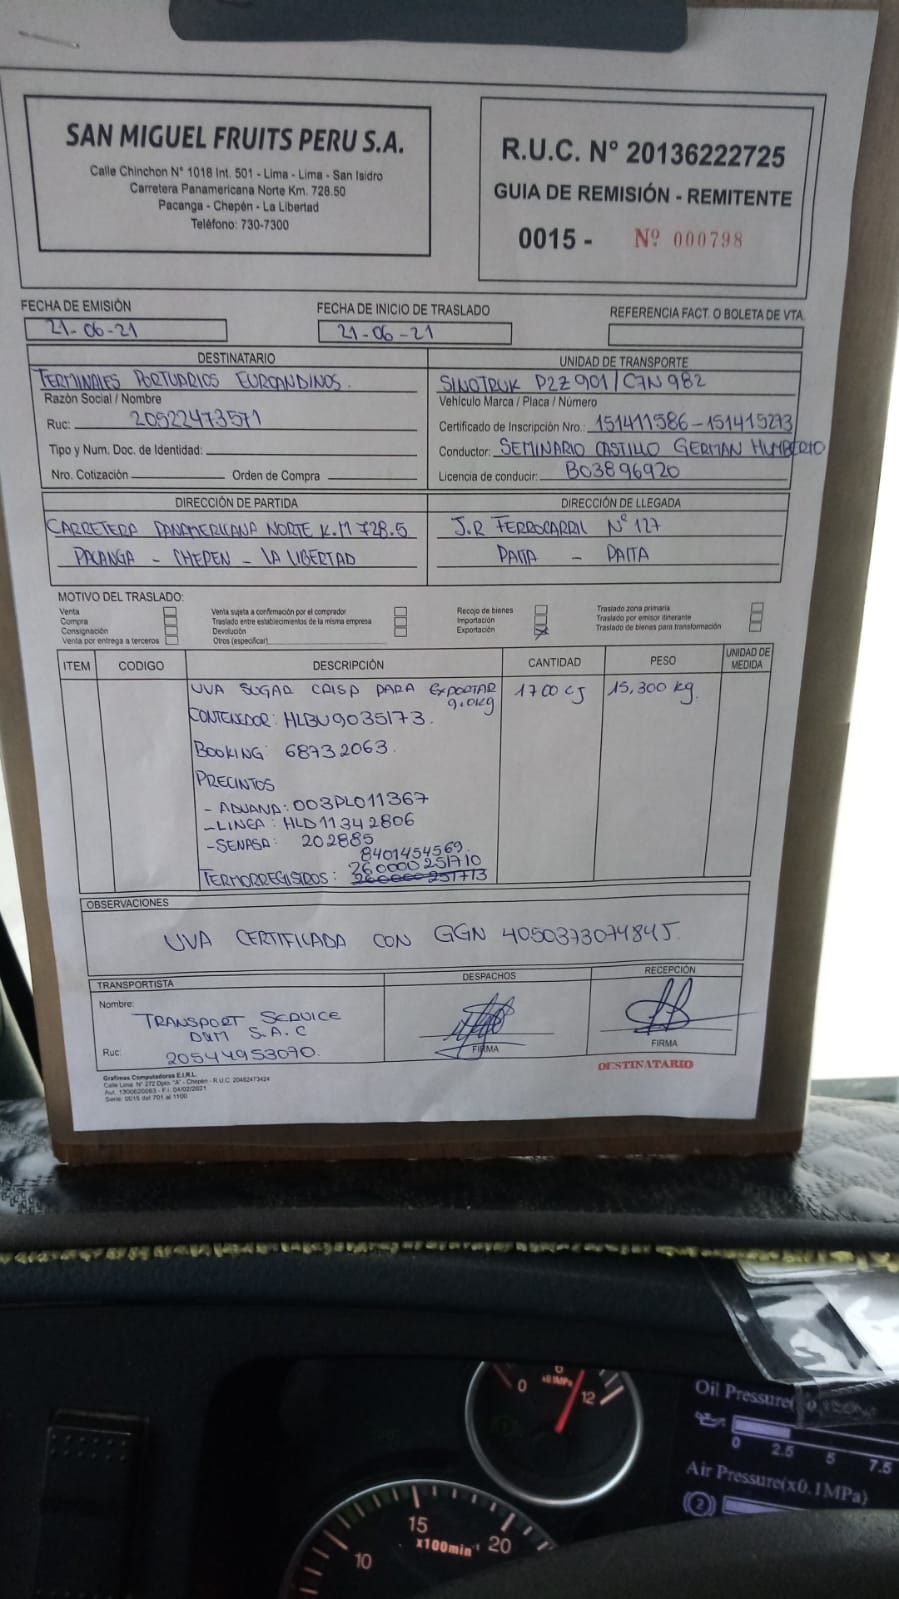 SAN MIGUEL FRUITS PERU S.A.
Calle Chinchon N° 1018 Int. 501 - Lima - Lima - San Isidro
Carretera Panamericana Norte Km. 728.50
Pacanga - Chepén - La Libertad
Teléfono: 730-7300
R.U.C. N° 20136222725
GUIA DE REMISIÓN - REMITENTE
0015 - Nº 000798
FECHA DE EMISIÓN
21-06-21
FECHA DE INICIO DE TRASLADO
21-06-21
REFERENCIA FACT. O BOLETA DE VTA.
DESTINATARIO
TERMINALES PORTUARIOS EUROANDINOS.
Razón Social / Nombre
Ruc: 20522473571
Tipo y Num. Doc. de Identidad:
Nro. Cotización Orden de Compra
UNIDAD DE TRANSPORTE
SINOTRUK P2Z901/C7N982
Vehículo Marca / Placa / Número
Certificado de Inscripción Nro.: 151411586-151415293
Conductor: SEMINARIO CASTILLO GERMAN HUMBERTO
Licencia de conducir: B03896920
DIRECCIÓN DE PARTIDA
CARRETERA PANAMERICANA NORTE K.M 728.5
PACANGA - CHEPEN - LA LIBERTAD
DIRECCIÓN DE LLEGADA
J.R FERROCARRIL Nº 127
PAITA - PAITA
MOTIVO DEL TRASLADO:
Venta
Compra
Consignación
Venta por entrega a terceros
Venta sujeta a confirmación por el comprador
Traslado entre establecimientos de la misma empresa
Devolución
Otros (especificar)
Recojo de bienes
Importación
Exportación X
Traslado zona primaria
Traslado por emisor itinerante
Traslado de bienes para transformación
ITEM CODIGO DESCRIPCIÓN CANTIDAD PESO UNIDAD DE MEDIDA
UVA SUGAR CRISP PARA EXPORTAR 1700 CJ 15,300 kg.
9.0kg
CONTENEDOR: HLBU9035173.
BOOKING: 68732063.
PRECINTOS
- ADUANA: 003PL011367
- LINEA: HLD11342806
- SENASA: 202885
8401454569.
260000251710
TERMORREGISTROS: 260000251713
OBSERVACIONES
UVA CERTIFICADA CON GGN 4050373074845.
TRANSPORTISTA
Nombre:
TRANSPORT SERVICE
D&M S.A.C
Ruc: 20544953070.
DESPACHOS
FIRMA
RECEPCIÓN
FIRMA
DESTINATARIO
Graficas Computadoras E.I.R.L.
Calle Lima N° 272 Dpto. "A" - Chepén - R.U.C. 20482473424
Aut. 1300620083 - F.I. 04/02/2021
Serie: 0015 del 701 al 1100
0 12
x0.1MPa
Oil Pressure(
0 2.5 5 7.5
Air Pressure(x0.1MPa)
2
10 15 20
x100min